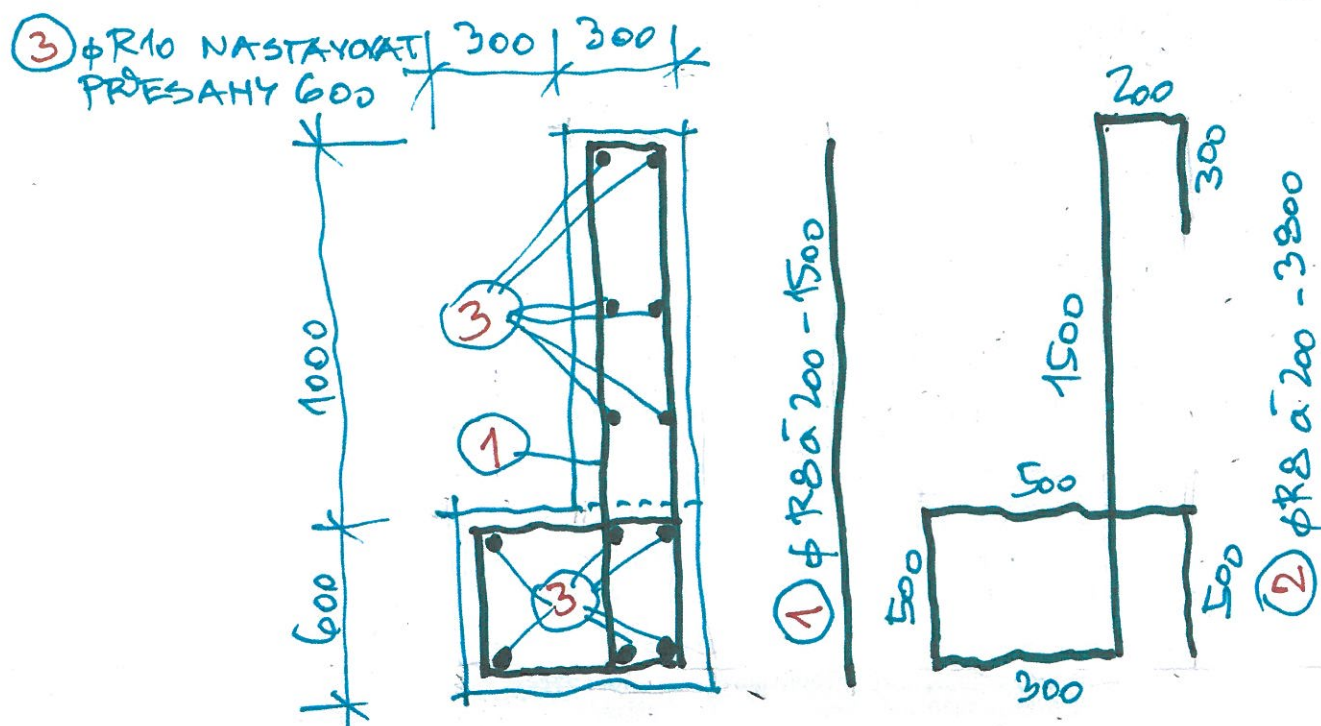 3 ϕR10 NASTAVOVAT
PŘESAHY 600
300
300
1000
600
3
1
3
1 ϕR8 á 200 - 1500
200
300
1500
500
500
500
300
2 ϕR8 á 200 - 3800